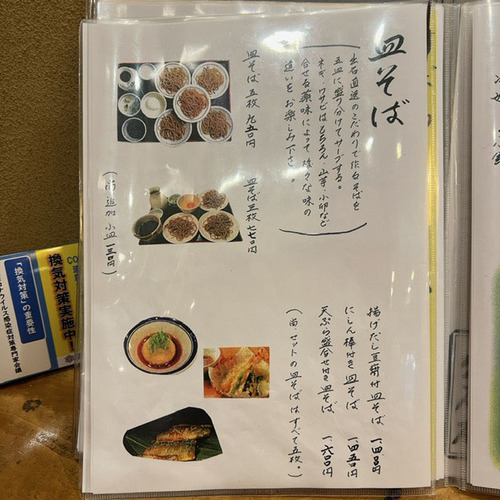 皿そば
出石直送のこだわりで作るそばを
五皿に盛り分けてサーブする。
ネギ・ワサビはもちろん、山芋・小卵など
合せる薬味によって様々な味の
違いをお楽しみ下さい。
皿そば 五枚 九五〇円
皿そば 三枚 七七〇円
(尚 追加 小皿 一三〇円)
揚げだし豆腐付 皿そば
にしん棒付き 皿そば 一四五〇円
天ぷら盛合せ付き 皿そば 一六〇〇円
(尚 セットの皿そばはすべて五枚。)
「換気対策」の重要性
換気対策実施中!